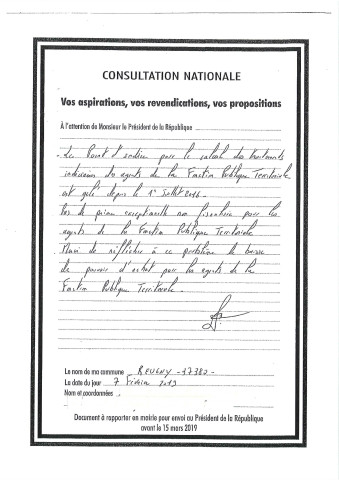 CONSULTATION NATIONALE
Vos aspirations, vos revendications, vos propositions
À l'attention de Monsieur le Président de la République
- Le Point d'indice pour le calcul des traitements
indiciaires des agents de la Fonction Publique Territoriale
est gelé depuis le 1er Juillet 2016.
Pas de prime exceptionnelle non fiscalisée pour les
agents de la Fonction Publique Territoriale
Merci de réfléchir à ce problème de baisse
de pouvoir d'achat pour les agents de la
Fonction Publique Territoriale.
Le nom de ma commune REUGNY - 37380 -
La date du jour 7 Février 2019
Nom et coordonnées
Document à rapporter en mairie pour envoi au Président de la République
avant le 15 mars 2019